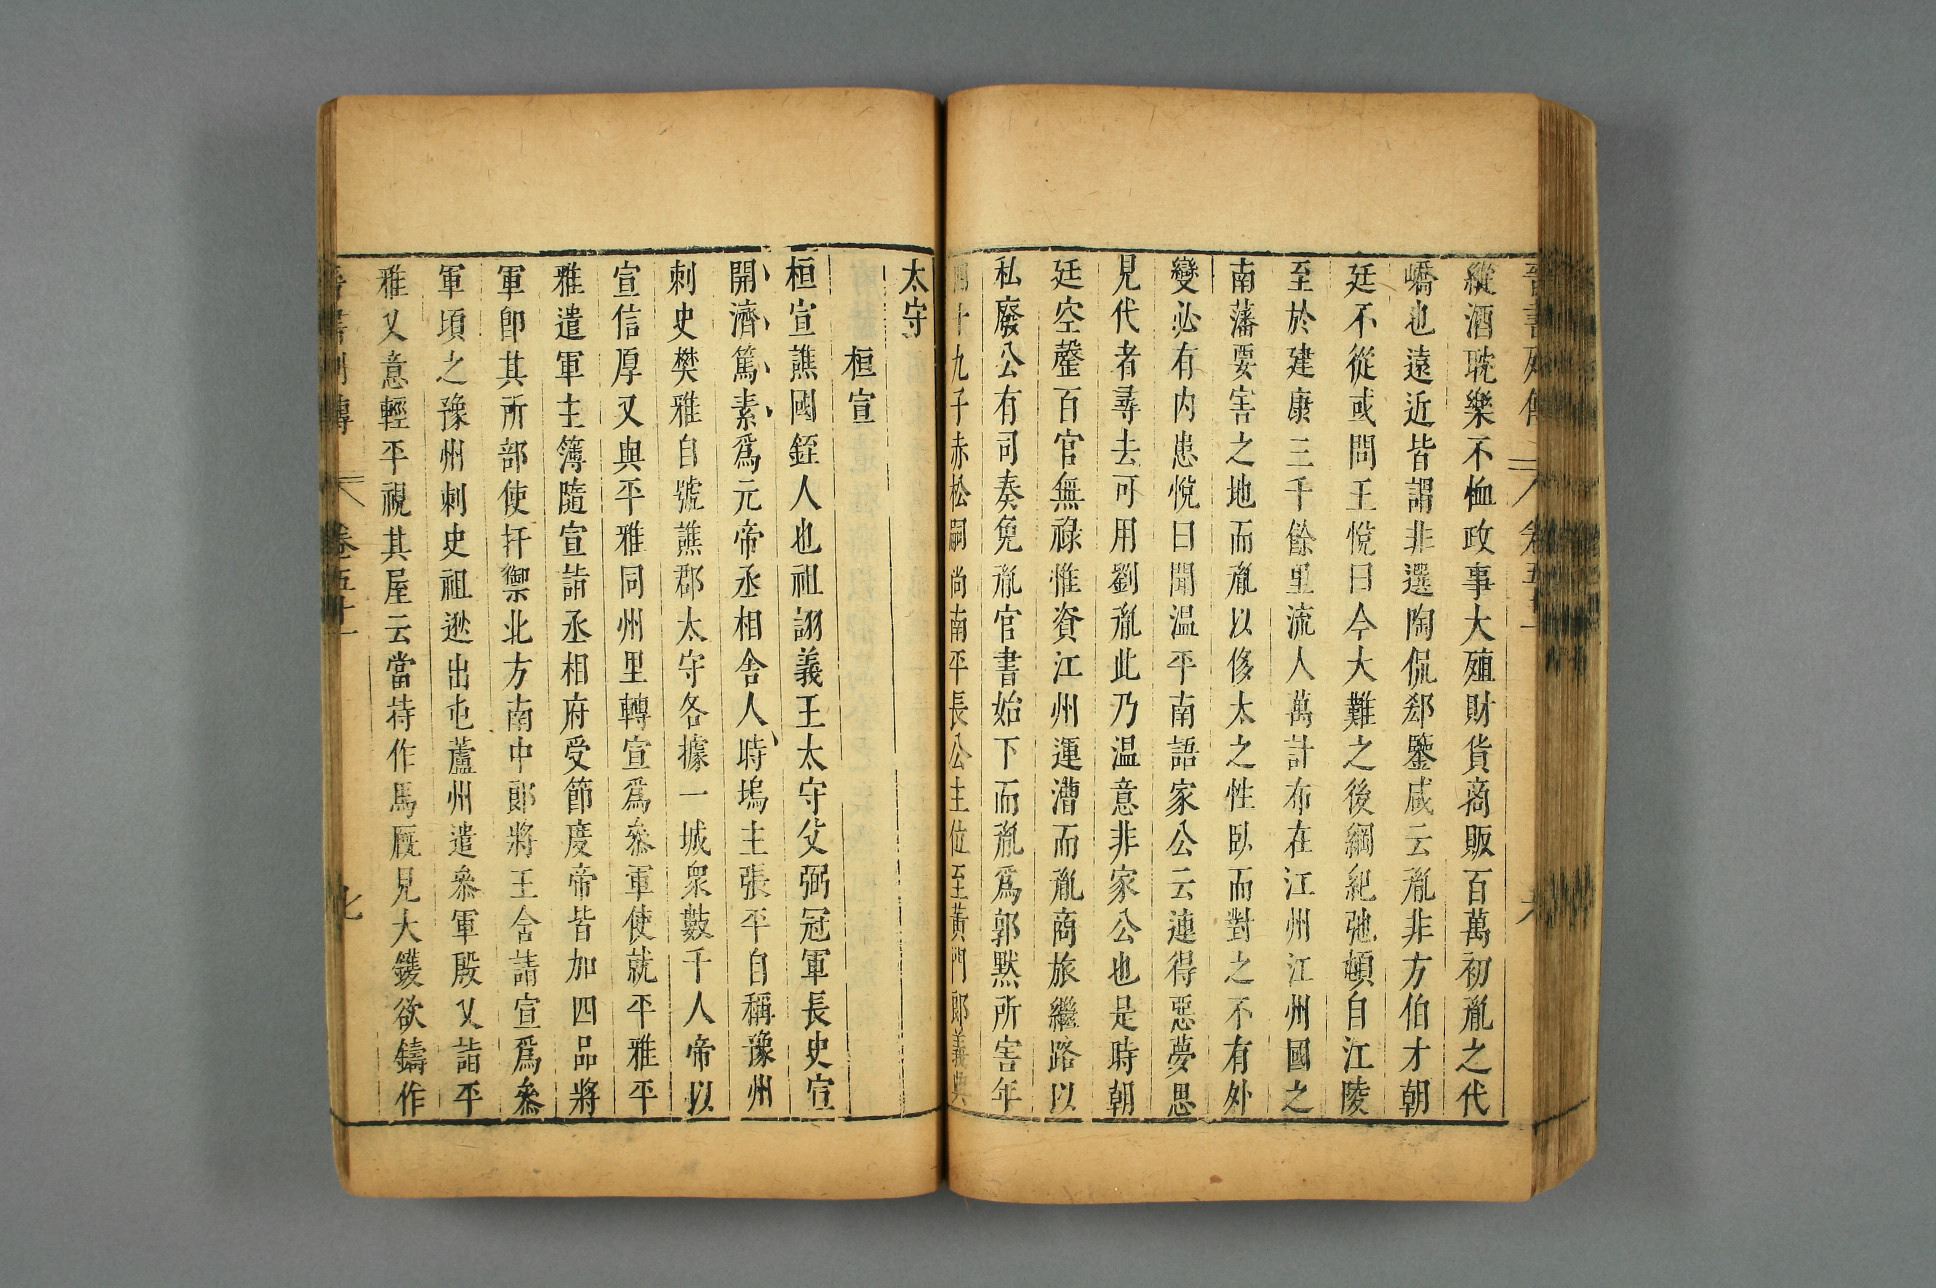 晉書列傳 卷五十一 六
縱酒耽樂不恤政事大殖財貨商販百萬初胤之代
嶠也遠近皆謂非選陶侃郄鑒咸云胤非方伯才朝
廷不從或問王悅曰今大難之後綱紀弛頓自江陵
至於建康三千餘里流人萬計布在江州江州國之
南藩要害之地而胤以侈太之性臥而對之不有外
變必有内患悅曰聞温平南語家公云連得惡夢思
見代者尋去可用劉胤此乃温意非家公也是時朝
廷空罄百官無祿惟資江州運漕而胤商旅繼路以
私廢公有司奏免胤官書始下而胤爲郭默所害年
十九子赤松嗣尚南平長公主位至黃門郎義興
太守
桓宣
桓宣譙國銍人也祖詡義王太守父弼冠軍長史宣
開濟篤素爲元帝丞相舍人時塢主張平自稱豫州
刺史樊雅自號譙郡太守各據一城衆數千人帝以
宣信厚又與平雅同州里轉宣爲叅軍使就平雅平
雅遣軍主簿隨宣詣丞相府受節度帝皆加四品將
軍卽其所部使扞禦北方南中郞將王含請宣爲叅
軍頃之豫州刺史祖逖出屯蘆州遣叅軍殷乂詣平
雅乂意輕平視其屋云當持作馬厩見大鑊欲鑄作
晉書列傳 卷五十一 七